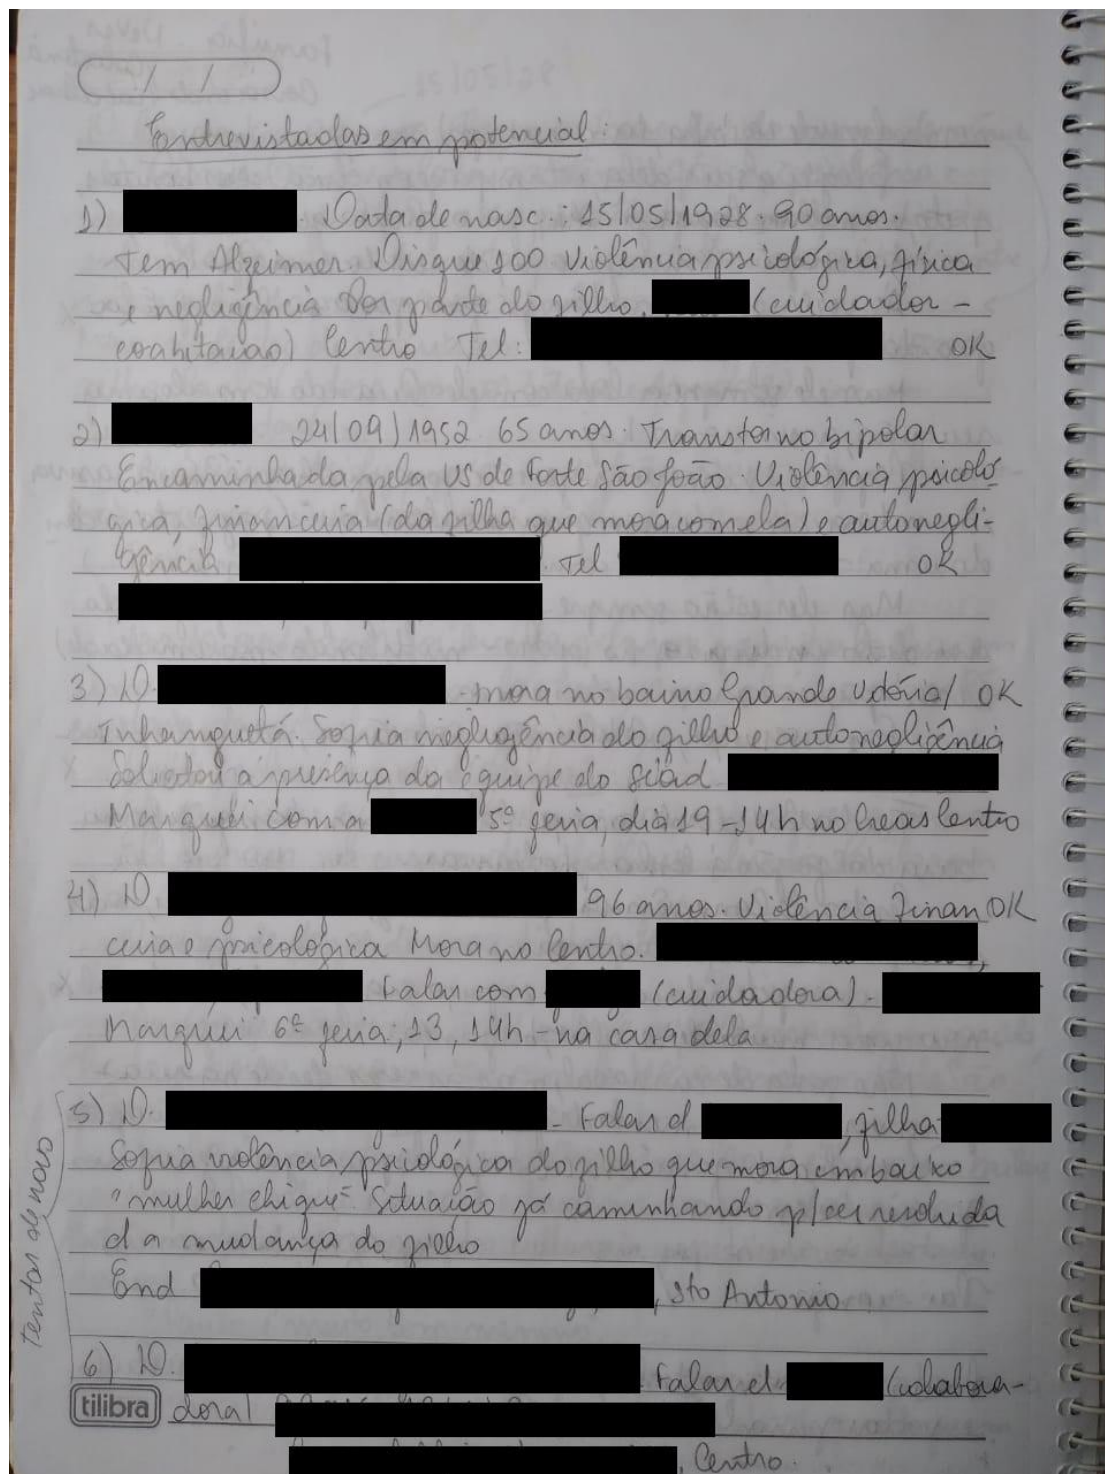 / /
Entrevistadas em potencial:
1) . Data de nasc.: 15/05/1928. 90 anos.
Tem Alzeimer. Disque 100 Violência psicológica, física
e negligência por parte do filho. (cuidador -
coabitação) Centro Tel: OK
2) 24/09/1952 65 anos. Transtorno bipolar
Encaminhada pela US de Forte São João. Violência psicoló
gica, financeira (da filha que mora com ela) e autonegli-
gência . Tel OK
3) D. - mora no bairro Grande Vitória/ OK
Inhanguetá. Sofria negligência do filho e autonegligência
Solicitou a presença da equipe do Siad
Marquei com a 5ª feria, dia 19 - 14h no Creas Centro
4) D. 96 anos. Violência Finan OK
ceira e psicológica Mora no Centro.
Falar com (cuidadora).
Marquei 6ª feria, 13, 14h - na casa dela
5) D. - Falar c/ , filha
Sofria violência psicológica do filho que mora embaixo
"mulher chique" Situação já caminhando p/ ser resolvida
c/ a mudança do filho
End , Sto Antonio
Tentar de novo
6) D. Falar c/ (colabora-
dora)
, Centro.
tilibra